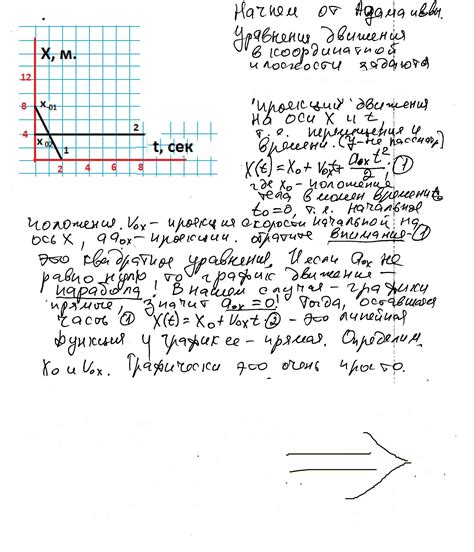 X, м.
12
8
x-01
4
x-02
2
1
t, сек
2
4
6
8
Начнем от Адама и Евы.
Уравнения движения
в координатной
плоскости задаются
"проекций" движения
на оси X и t,
т.е. перемещения и
времени. (y-не рассматр)
X(t) = X₀ + V₀ₓt + a₀ₓt²/2, ①
где x₀ - положение
тела в момен времени
t₀=0, т.е. начальное
положения. V₀ₓ - проекция скорости начальной на
ось X, а a₀ₓ - проекции. обратите внимание - ①
это квадратное уравнение. И если a₀ₓ не
равно нулю то график движение -
парабола! В нашем случая - графики
прямые, значит a₀ₓ=0! Тогда, оставшаяся
часть ① X(t) = X₀ + V₀ₓt ② - это линейная
функция и график ее - прямая. Определим
X₀ и V₀ₓ. Графически это очень просто.